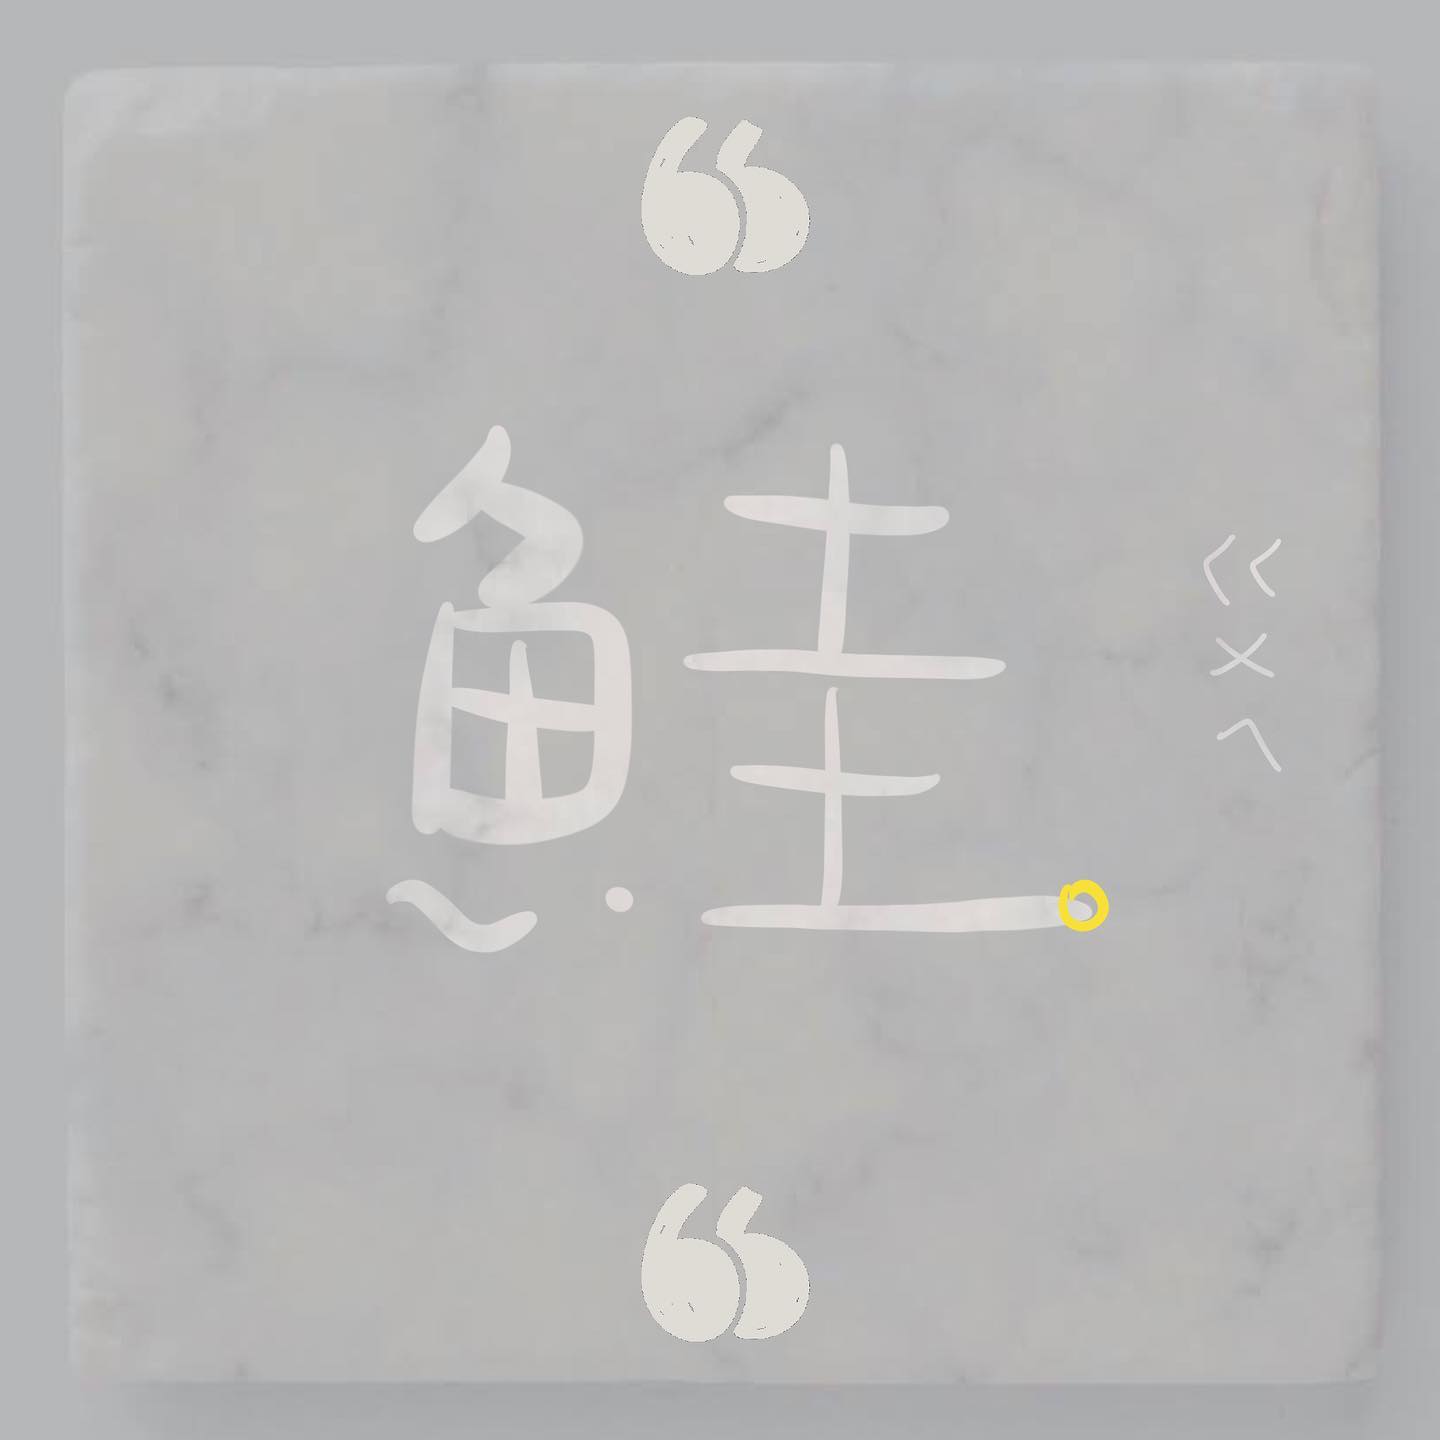 “
鮭
ㄍㄨㄟ
“